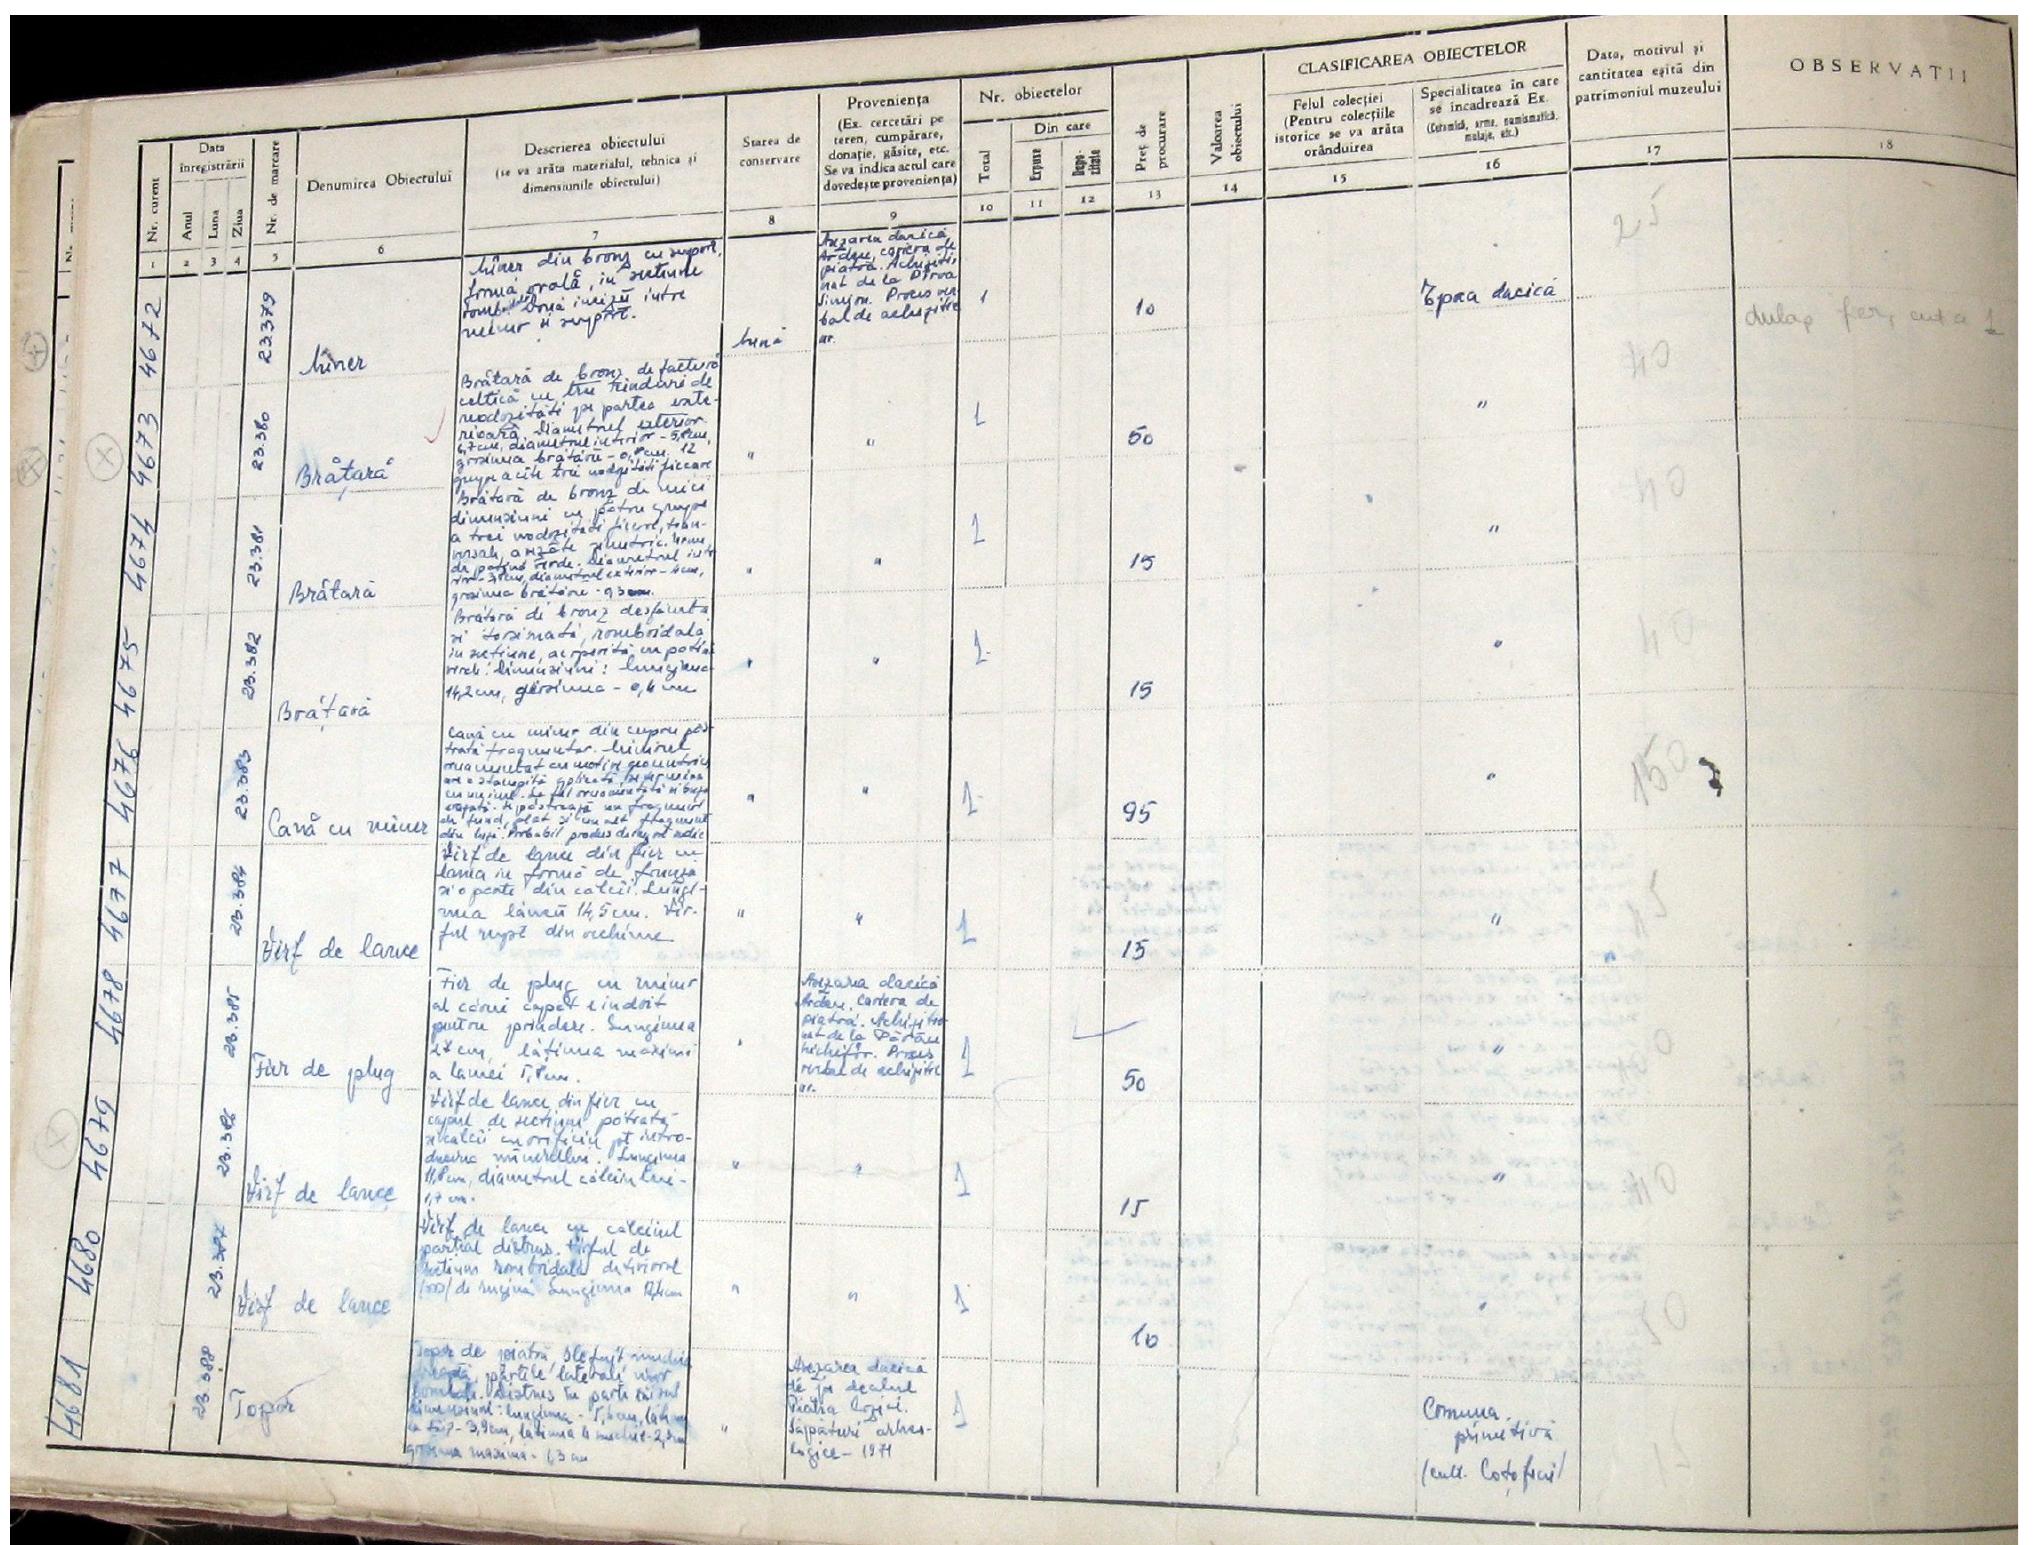 Nr. curent
Data
înregistrării
Anul
Luna
Ziua
Nr. de marcare
Denumirea Obiectului
Descrierea obiectului
(se va arăta materialul, tehnica și
dimensiunile obiectului)
Starea de
conservare
Proveniența
(Ex. cercetări pe
teren, cumpărare,
donație, găsite, etc.
Se va indica actul care
dovedește proveniența)
Nr. obiectelor
Total
Din care
Expuse
Depo-
zitate
Preț de
procurare
Valoarea
obiectului
CLASIFICAREA OBIECTELOR
Felul colecției
(Pentru colecțiile
istorice se va arăta
orânduirea
Specialitatea în care
se încadrează Ex.
(Ceramică, arme, numismatică,
mulaje, etc.)
Data, motivul și
cantitatea eșită din
patrimoniul muzeului
OBSERVAȚII
1 2 3 4 5 6 7 8 9 10 11 12 13 14 15 16 17 18
4672
23.379
Mîner
Mîner din bronz cu suport,
formă ovală, în secțiune
romb. Două incizii între
mîner și suport.
bună
Așezarea dacică
Ardeu, cariera de
piatră. Achizițio-
nat de la Pîrva
Simion. Proces ver
bal de achiziție
nr.
1
10
Epoca dacică
25
dulap fier, cutia 1
4673
23.380
Brățară
Brățară de bronz de factură
celtică cu trei rînduri de
nodozități pe partea exte-
rioară. Diametrul exterior
6,7cm, diametrul interior - 5,8cm,
grosimea brățării - 0,8cm. 12
grupe a cîte trei nodozități fiecare
"
"
1
50
"
4674
23.381
Brățară
Brățară de bronz de mici
dimensiuni cu patru grupe
a trei nodozități fiecare, trans-
versale, așezate simetric.
de patină verde. Diametrul inte
rior - cm, diametrul exterior - 4cm,
grosimea brățării - 0,3 cm.
"
"
1
15
"
4675
23.382
Brățară
Brățară de bronz desfăcută
și torsionată, romboidală
în secțiune, acoperită cu patină
verde. Dimensiuni: lungimea
14,2cm, grosimea - 0,4 cm
"
"
1
15
"
4676
23.383
Cană cu mîner
Cană cu mîner din cupru păs-
trată fragmentar. Mînerul
ornamentat cu motive geometrice
are o ștampilă aplicată
cu mîner. La fel ornamentată și buza
Se păstrează un fragment
de fund, plat și un alt fragment
din buză. Probabil produs de import
"
"
1
95
"
150
4677
23.384
Vîrf de lance
Vîrf de lance din fier cu
lama în formă de frunză
și o parte din călcîi. Lungi-
mea lăncii 14,5cm. Vîr-
ful rupt din vechime
"
"
1
15
"
4678
23.385
Fier de plug
Fier de plug cu mîner
al cărui capăt e îndoit
pentru prindere. Lungimea
cm, lățimea maximă
a lamei 5,8cm.
"
Așezarea dacică
Ardeu. Cariera de
piatră. Achizițio-
nat de la
Nichifor. Proces
verbal de achiziție
nr.
1
50
"
4679
23.386
Vîrf de lance
Vîrf de lance din fier cu
capul de secțiune pătrată
și călcîi cu orificiu pt intro-
ducerea mînerului. Lungimea
11,8cm, diametrul călcîiului -
1,7 cm.
"
"
1
15
"
4680
23.387
Vîrf de lance
Vîrf de lance cu călcîiul
parțial distrus. Vîrful de
secțiune romboidală deteriorat
de rugină. Lungimea 12,4cm
"
"
1
10
"
4681
23.388
Topor
Topor de piatră șlefuit muchia
dreaptă, părțile laterale ușor
bombate. Distrus în parte tăișul
Dimensiuni: lungimea - 5,6cm, lățim
ea tăiș - 3,9cm, lățimea la muchie - 2,8cm
grosimea maximă - 1,3 cm
"
Așezarea dacică
de pe dealul
Piatra Cozii.
Săpături arheo-
logice - 1971
1
Comuna
primitivă
/cult. Coțofeni/